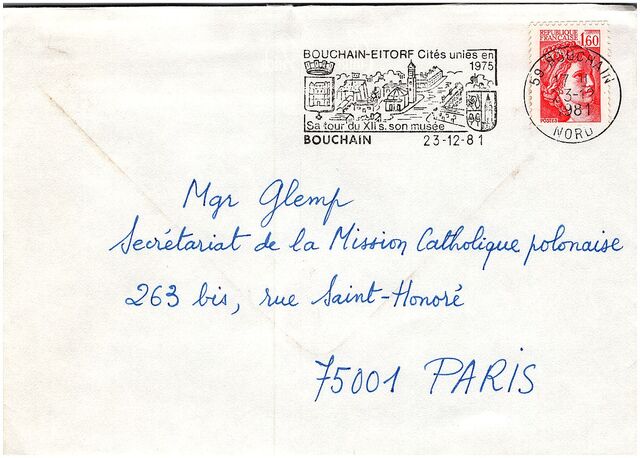 BOUCHAIN-EITORF Cités unies en
1975
Sa tour du XIIs. son musée
BOUCHAIN 23-12-81
REPUBLIQUE
FRANÇAISE 1,60
POSTES
59 BOUCHAIN
1981
NORD
Mgr Glemp
Secrétariat de la Mission Catholique polonaise
263 bis, rue Saint-Honoré
75001 PARIS